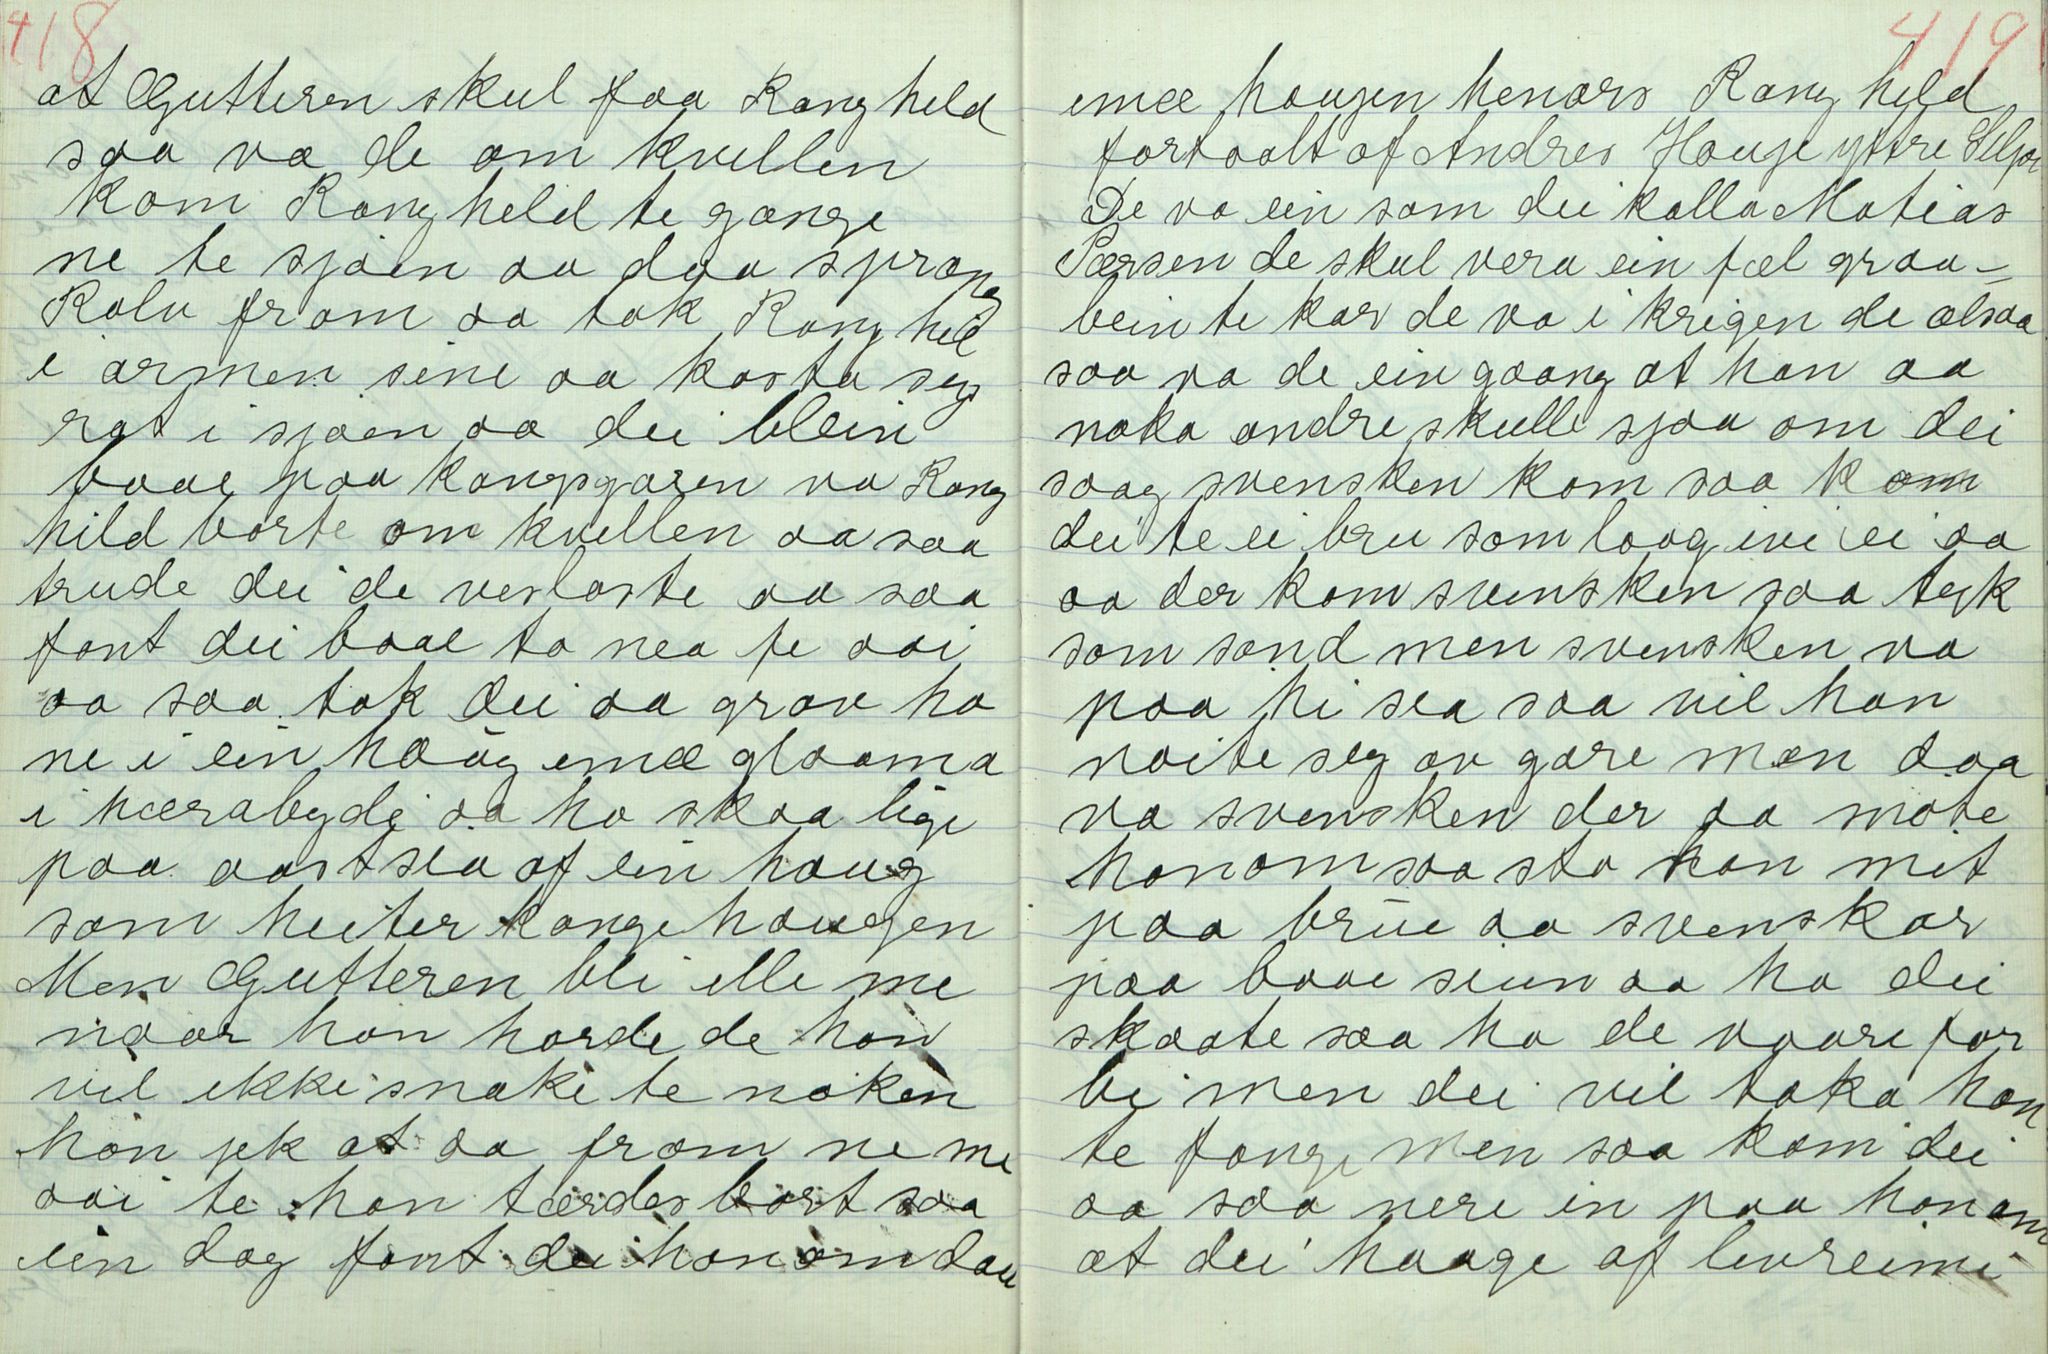 418
at Gutteren skul faa Rangheld
saa va de om kvellen
kom Rangheld te gange
ne te sjøen aa daa sprang
Rolv fram aa tok Ranghil
i armen sine aa kasta seg
rat i sjøen aa dei blein
baae paa kangsgaren va Rang
hild borte om kvellen aa saa
trude dei de veslaste aa saa
fant dei baae to nea fe aai
aa saa tok dei aa grov ho
ne i ein haug imæ glaama
i hærabygde aa ho skaa lige
paa aastsia af ein haug
som heiter kangehaugen
Men Gutteren bli ille me
naar han horde de han
vil ikkisnaki te naken
han jek at aa fram ne me
aai te han tærdes bort saa
ein dag fant dei hanom dau
419
imæ haugen henars Rangheld
fortaalt af Andres Hauge yttre
De va ein som dei kalla Matias
Pærsen de skul vera ein fæl graa-
bein te kar de va i krigen de alsaa
saa va de ein gaang at han aa
naka andre skulle sjaa om dei
saag svensken kom saa kom
dei te ei bru som laag ivi ei aa
aa der kom svensken saa tyk
som sand men svensken va
paa hi sea saa vil han
naite seg av gare men daa
va svensken der aa møte
hanom saa sto han mit
paa brue aa svenskar
paa baae sieun aa ha dei
skaate saa ha de vaare for
bi men dei vil taka han
te fange men saa kom dei
aa saa nere in paa hanom
at dei haage af livreimi